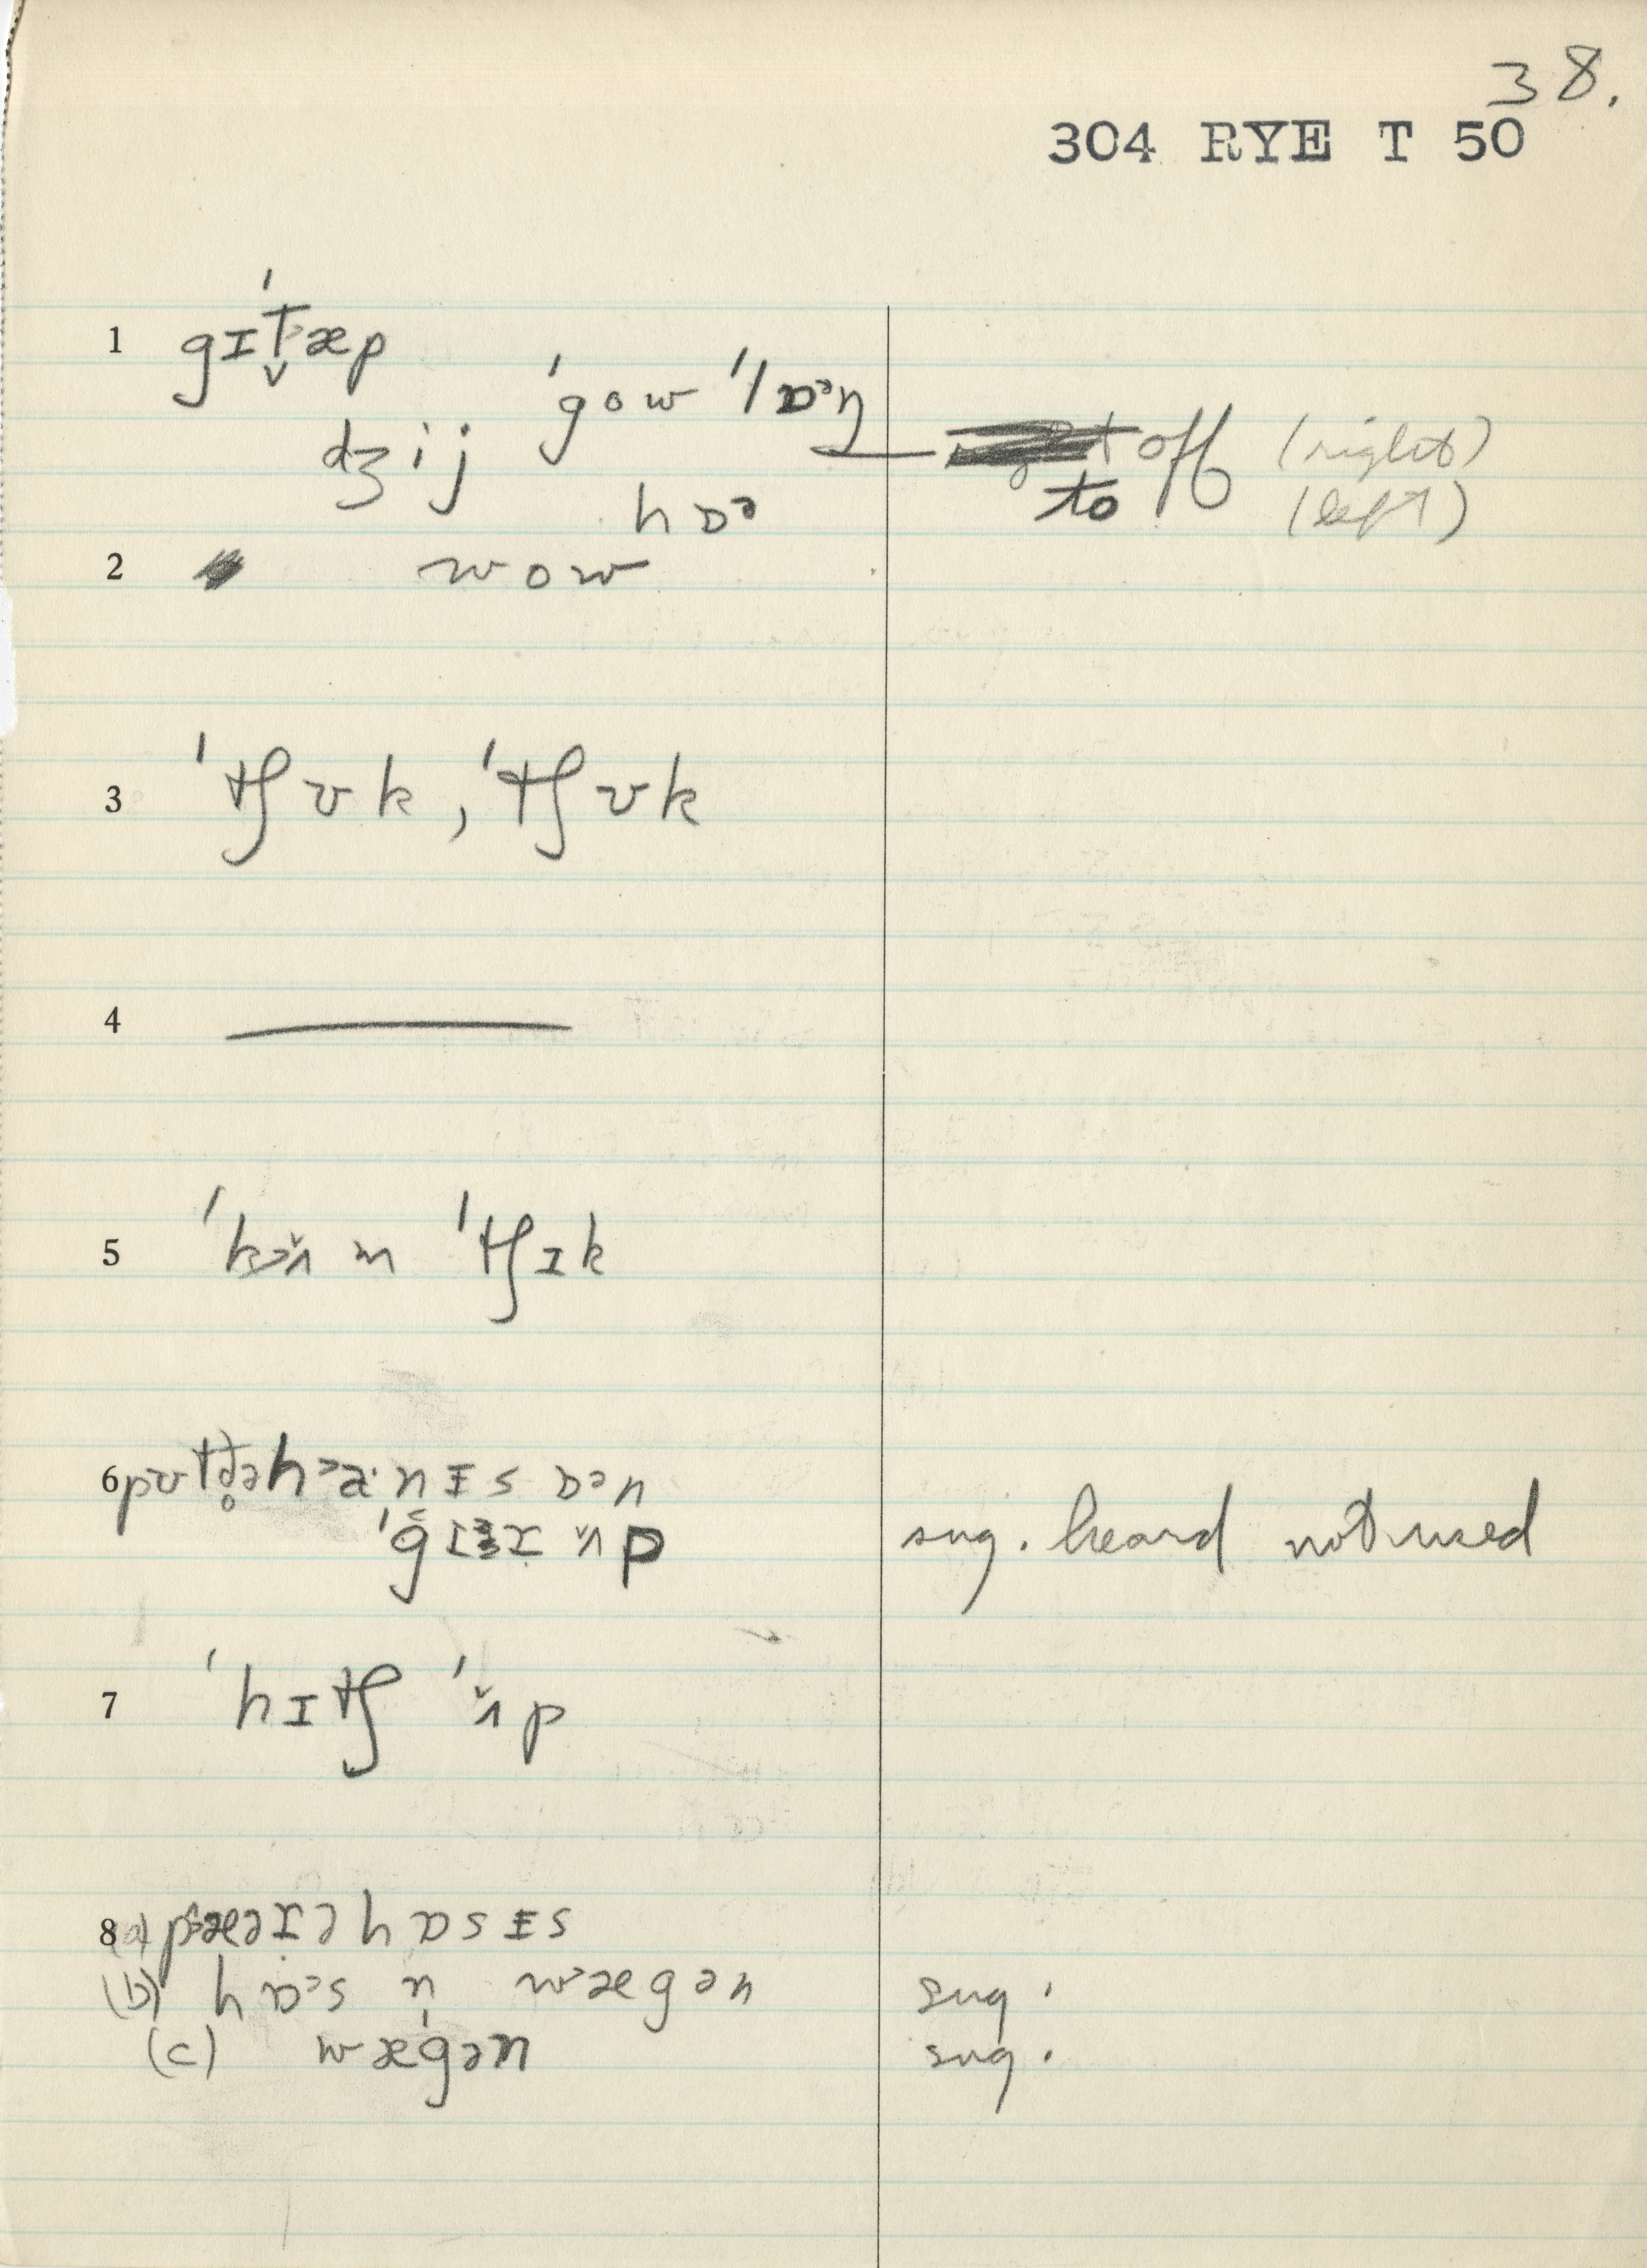 38.
304 RYE T 50
1 gɪˈt̬æp
ˈgow ˈlɒᵊŋ
dʒij
off (right)
hɒᵊ
to (left)
2 wow
3 ˈtʃʊk, ˈtʃʊk
4 —
5 ˈkɔʌ̌ m ˈtʃɪk
6 pʊt hænɪs ɒᵊn
ˈgɪ ʌ̌p sug. heard not used
7 ˈhɪtʃ ˈʌ̌p
8 (a) hɒsɪs
(b) hɒᵊs n̩ wægən sug.
(c) wægən sug.